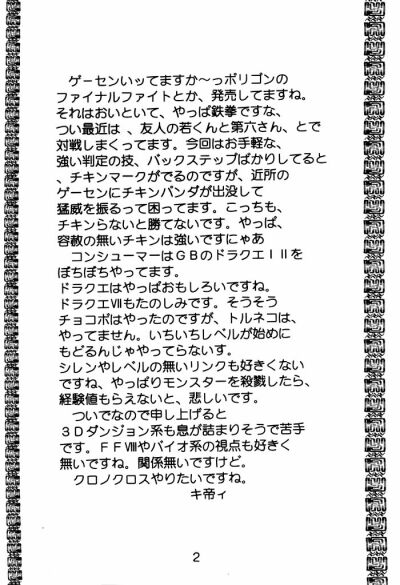 ゲーセンいッてますか～っポリゴンの
ファイナルファイトとか、発売してますね。
それはおいといて、やっぱ鉄拳ですな、
つい最近は、、友人の若くんと第六さん、とで
対戦しまくってます。今回はお手軽な、
強い判定の技、バックステップばかりしてると
、チキンマークがでるのですが、近所の
ゲーセンにチキンパンダが出没して
猛威を振るって困ってます。こっちも、
チキンらないと勝てないです。やっぱ、
容赦の無いチキンは強いですにゃあ
コンシューマーはＧＢのドラクエＩＩを
ぼちぼちやってます。
ドラクエはやっぱおもしろいですね。
ドラクエⅦもたのしみです。そうそう
チョコボはやったのですが、トルネコは、
やってません。いちいちレベルが始めに
もどるんじゃやってらないす。
シレンやレベルの無いリンクも好きくない
ですね、やっぱりモンスターを殺戮したら、
経験値もらえないと、悲しいです。
ついでなので申し上げると
３Ｄダンジョン系も息が詰まりそうで苦手
です。ＦＦⅧやバイオ系の視点も好きく
無いですね。関係無いですけど。
クロノクロスやりたいですね。
キ帝ィ
2